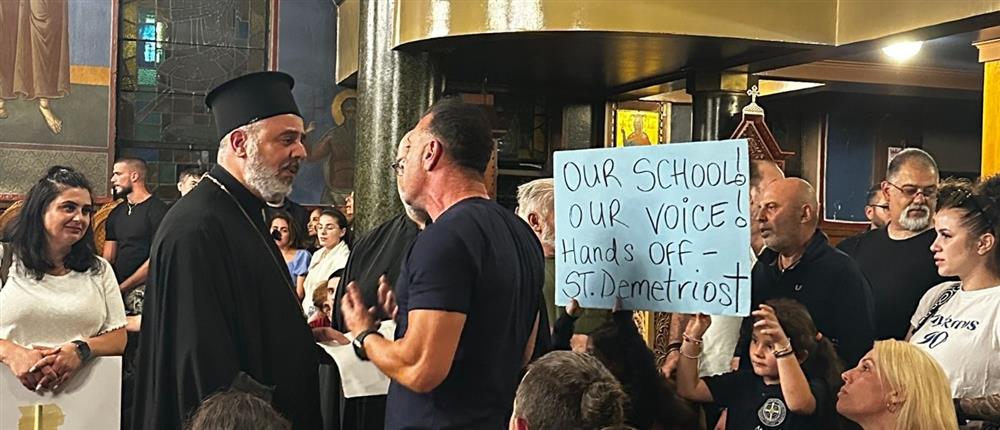 OUR SCHOOL!
OUR VOICE!
Hands OFF -
ST. Demetrios†